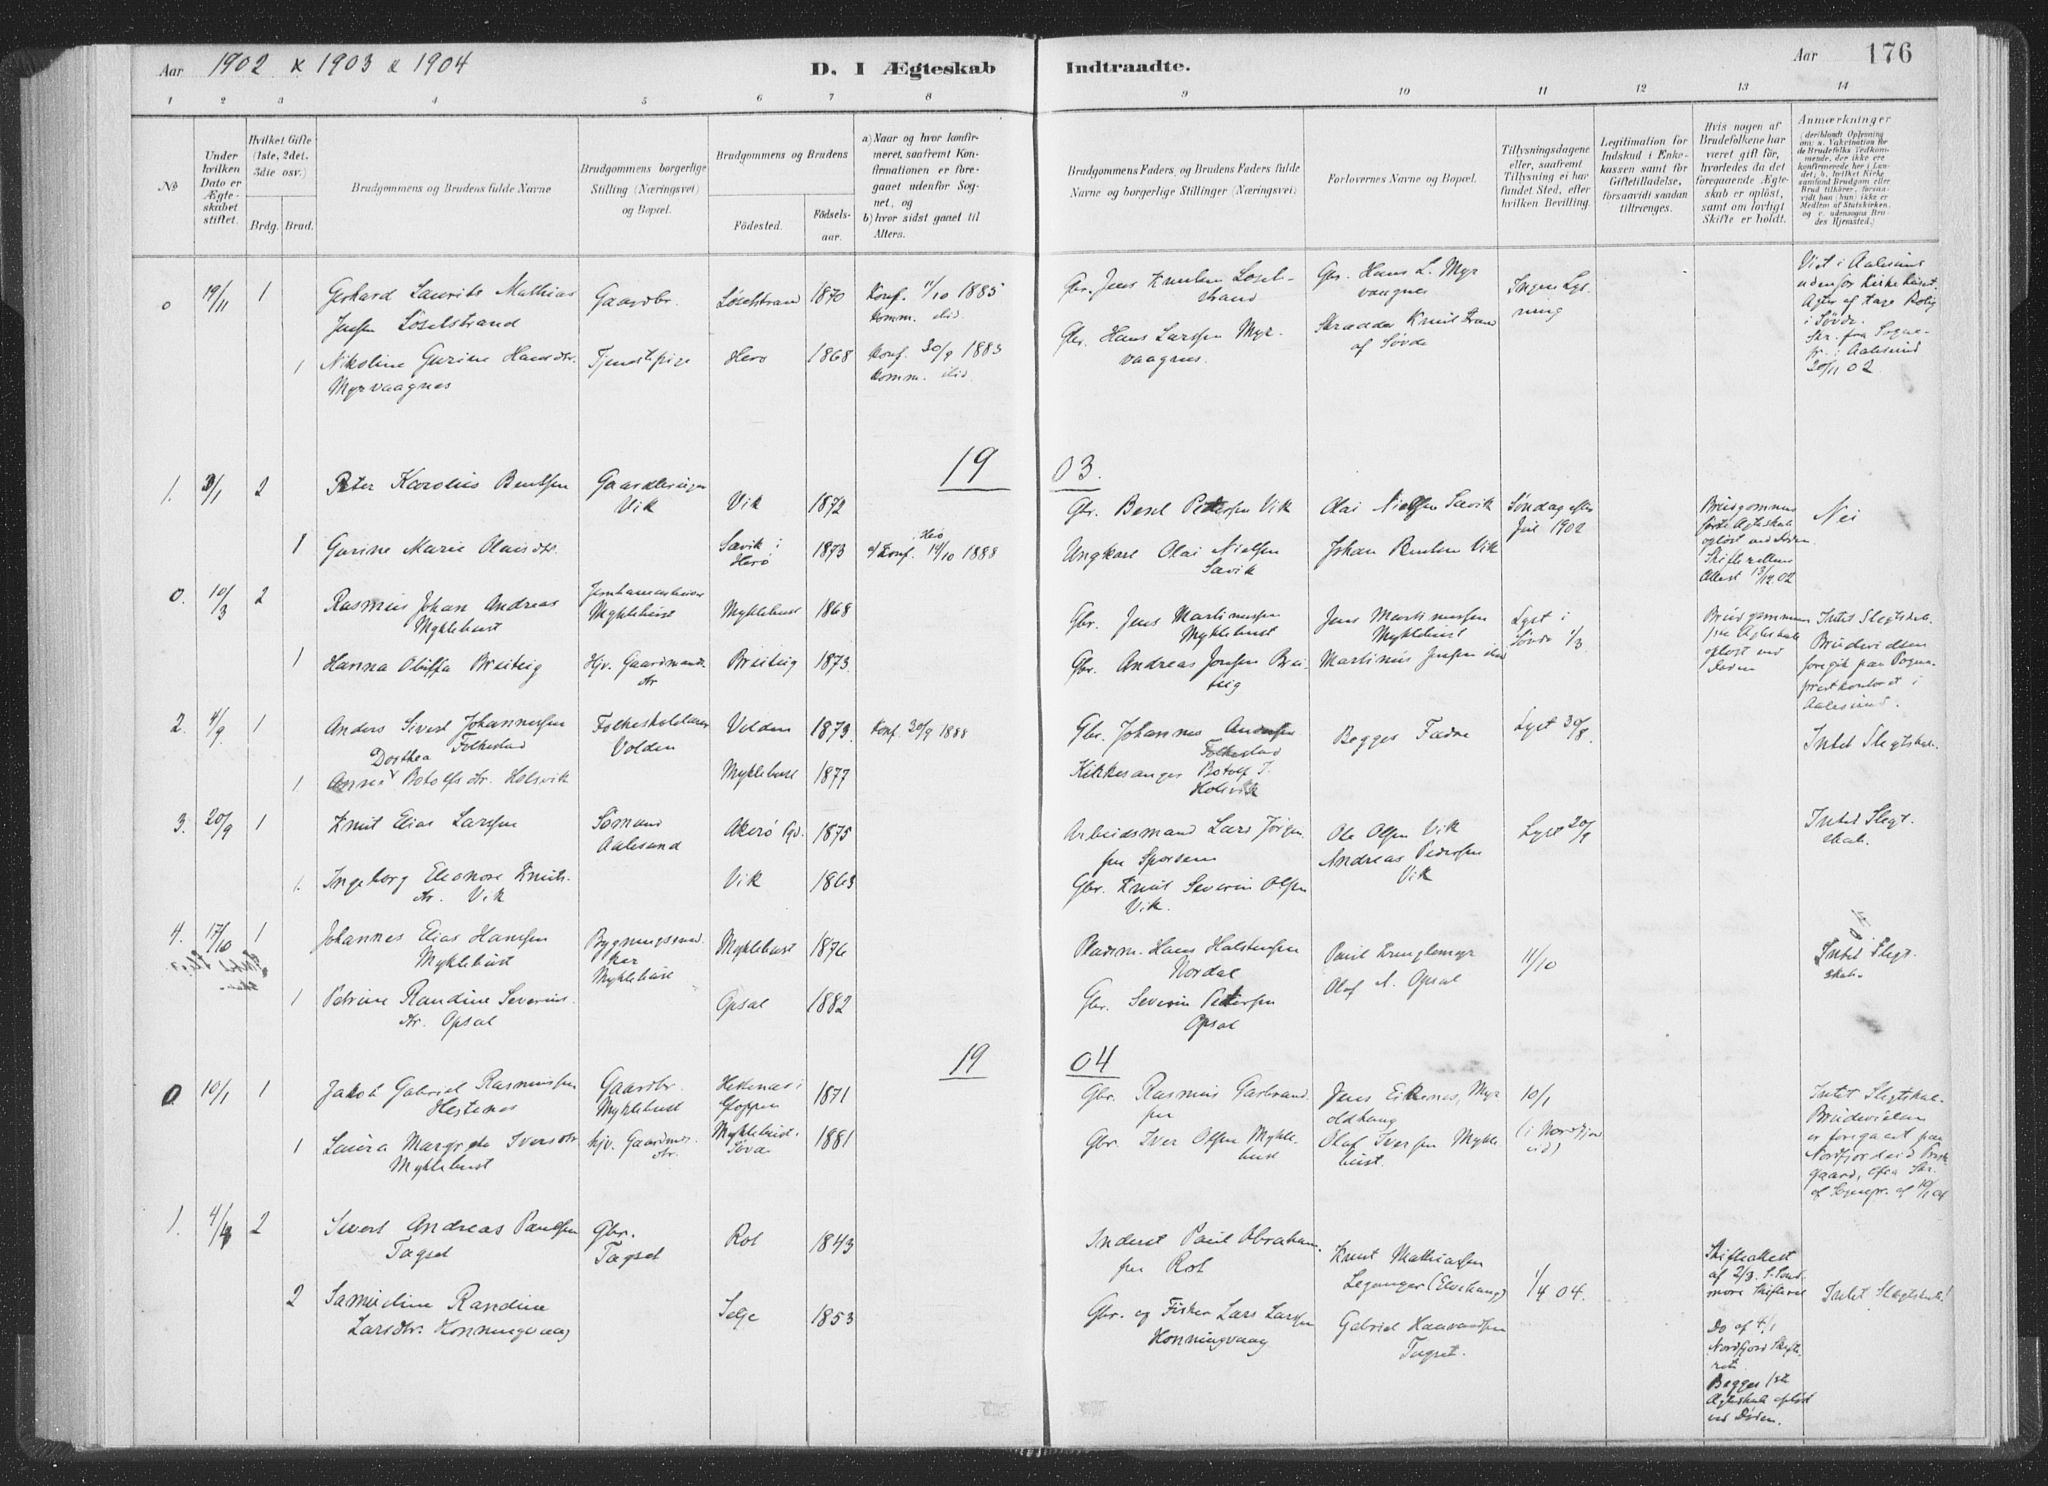 Aar 1902 & 1903 & 1904
D. I Ægteskab Indtraadte.
Aar 176
1 2 3 4 5 6 7 8 9 10 11 12 13 14
No
Under hvilken Dato er Ægteskabet stiftet.
Hvilket Gifte (1ste, 2det, 3die osv.)
Brdg. Brud.
Brudgommens og Brudens fulde Navne
Brudgommens borgerlige Stilling (Næringsvei) og Bopæl.
Brudgommens og Brudens
Födested.
Födselsaar.
a) Naar og hvor konfirmeret, saafremt Konfirmationen er foregaaet udenfor Sognet, og
b) hvor sidst gaaet til Alters.
Brudgommens Faders, og Brudens Faders fulde Navne og borgerlige Stillinger (Næringsvei)
Forlovernes Navne og Bopæl.
Tillysningsdagene eller, saafremt Tillysning ei har fundet Sted, efter hvilken Bevilling.
Legitimation for Indskud i Enkekassen samt for Giftetilladelse, forsaavidt saadan tiltrænges.
Hvis nogen af Brudefolkene har været gift för, hvorledes da det foregaaende Ægteskab er oplöst, samt om lovligt Skifte er holdt.
Anmærkninger
0 19/11 1 Gerhard Laurits Mathias Gaardbr. Løselstrand 1870 Konf. 11/10 1885
Jensen Løselstrand Komm. did.
Gbr. Jens Knutsen Løselstrand
Gbr. Hans L. Myrvaagnes
Ingen Lysning
Viet i Aalesund
udenfor Kirkehuset.
i Søvde.
Skr. fra Sognepr. i Aalesund
20/11 02
1 Nikoline Gurine Hansdtr. Tjenestepige Herø 1868 Konf. 30/9 1883
Myrvaagnes Komm. did.
Gbr. Hans Larssen Myrvaagnes.
Skrædder Knut Strand
af Søvde
1903.
1. 3/1 2 Peter Karolius Bentsen Vik Vik 1872
Gbr. Bent Petersen Vik
Olai Nielsen Sævik
Søndag efter
Jul 1902
Brudgommens
første Ægteskab
opløst ved Døden.
Skifterettens
Attest 13/12 02
Nei
1 Gurine Marie Olaisdtr. Sævik i Herø 1873 a/ Konf. i Herø 14/10 1888
Ungkarl Olai Nielsen
Sævik
Johan Bentsen Vik
0. 10/3 2 Rasmus Johan Andreas Myklebust Myklebust 1868
Myklebust
Gbr. Jens Martinussen
Myklebust
Jens Martinussen
Myklebust
Lyst i
Søvde 1/3
Brudgommens
fre Ægteskab
opløst ved
Døden
Intet Slegtskab.
Brudevielsen
foregik paa Sogneprestkontoret i
Aalesund.
1 Hanna Oluffa Breiteig Hjv. Gaardmandsdtr. Breiteig 1873.
Gbr. Andreas Jonssen Breiteig
Martinus Jensen did
2. 4/9. 1 Anders Sivert Johannessen Folkeskolelærer Volden 1873. Konf. 30/9 1888
Folkestad Volden
Gbr. Johannes Anderssen
Folkestad
Begges Fædre
Lyst 30/8.
Intet Slegtskab.
1. Anne Dorthea Botolfsdtr. Holsvik Myklebust 1877
Kirkesanger Botolf J.
Holsvik
3. 20/9 1 Knut Elias Larssen Sømand Akerö Gv. 1875
Aalesund
Arbeidsmand Lars Jörgensen Spordsem
Ole Olsen Vik
Andreas Pedersen
Vik
Lyst 20/9
Intet Slegtskab.
1. Ingeborg Eleonore Knutsdtr. Vik Vik 1863
Gbr. Knut Severin Olsen
Vik.
4. 17/10 1 Johannes Elias Hanssen Bygningssnedker Myklebust 1876
Myklebust Myklebust
Pladsm. Hans Halstensen
Nordal
Paul Kringlemyr
Olaf A. Opsal
11/10
Intet Slegtskab.
1 Petrine Randine Severinsdtr. Opsal Opsal 1882
Gbr. Severin Petersen
Opsal
1904
0 10/1 1 Jakob Gabriel Rasmussen Gaardbr. Hestenæs i Gloppen 1871
Hestenes Myklebust
Gbr. Rasmus Garbrandsen
Jens Eikenes, Myroldhaug
10/1
(i Nordfjordeid)
Intet Slegtskab.
Brudevielsen
er foregaaet paa
Nordfjordeid Prestegaard, efter Skr.
af Sognepr. af 10/1 04
1 Laura Margrete Iversdtr. hjv. Gaardmdsdtr. Myklebust i Søvde 1881
Myklebust
Gbr. Iver Olsen Myklebust
Olaf Iversen Myklebust.
1. 4/4 2 Sivert Andreas Paulsen Gbr. Rot 1843
Tagset Tagset
Inderst Paul Abrahamsen Rot
Knut Mathiassen
Leganger (Elvehaug)
1/4 04.
Skifteattest
af 2/3. S. Søndmøre Skifteret
Do af 4/1
Nordfjord Skifteret.
Begges 1ste
Ægteskab opløst
ved Døden.
Intet Slegtskab!
2 Samueline Randine Selje 1853
Larsdtr. Honningvaag
Gbr. og Fisker Lars Larssen
Honningvaag
Gabriel Haavardsen
Tagset.